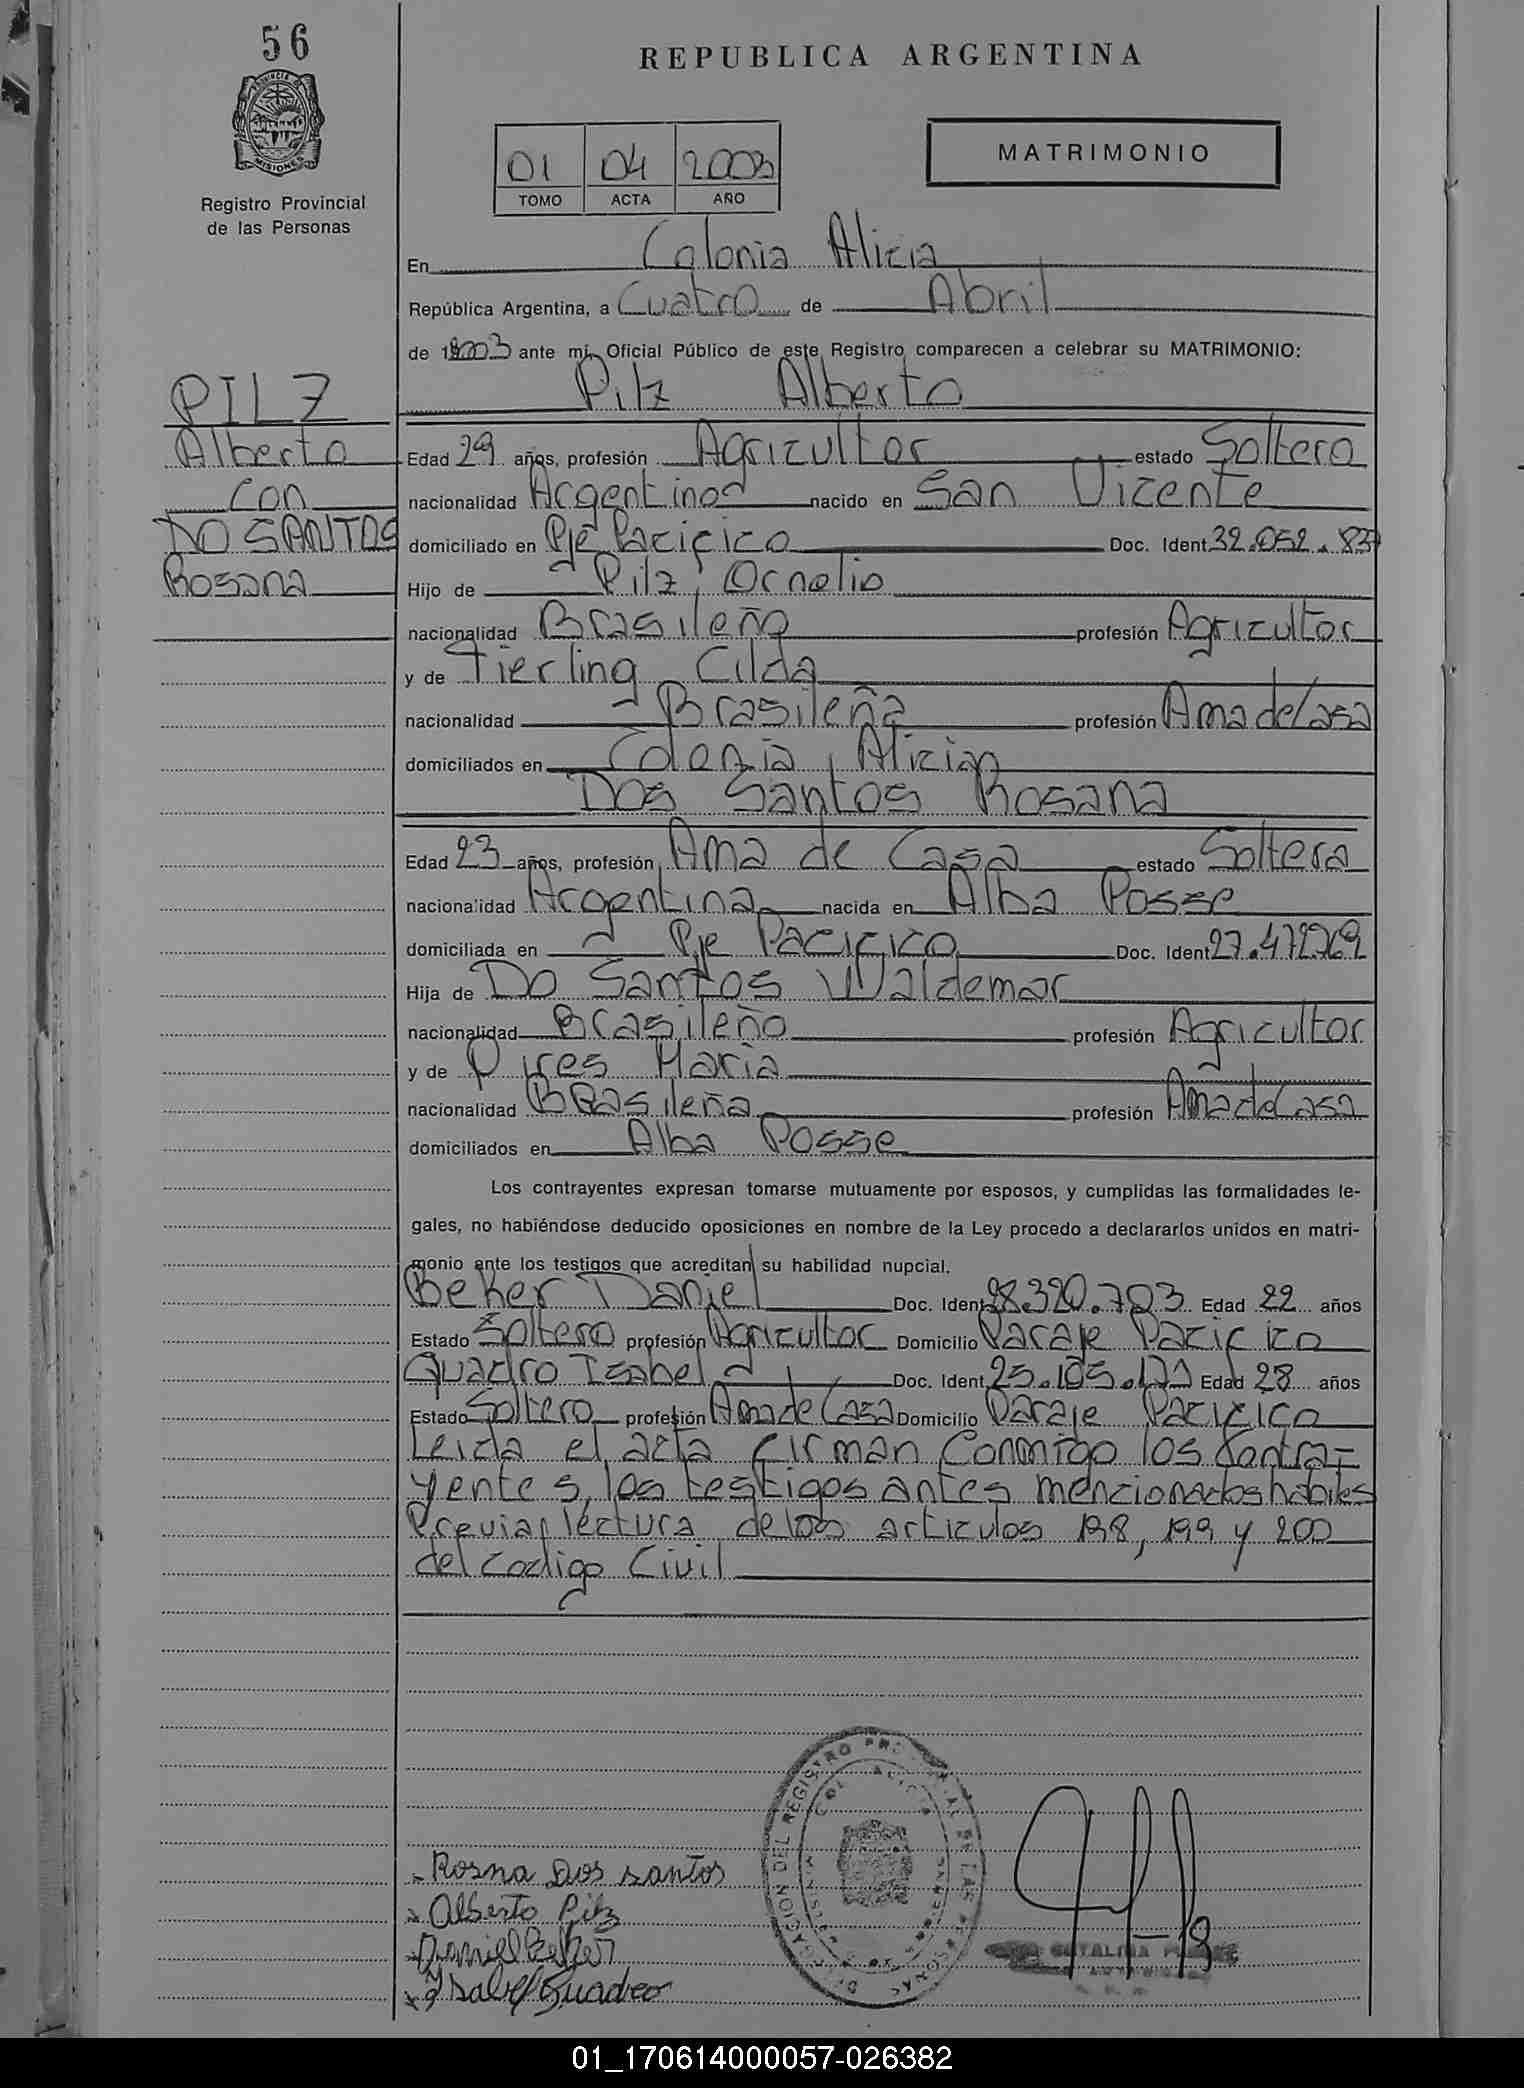 56
REPUBLICA ARGENTINA
PROVINCIA DE
MISIONES
Registro Provincial
de las Personas
01 04 2003
TOMO ACTA AÑO
MATRIMONIO
En Colonia Alicia
República Argentina, a Cuatro de Abril
de 2003 ante mí, Oficial Público de este Registro comparecen a celebrar su MATRIMONIO:
PILZ
Alberto
con
DO SANTOS
Rosana
Pilz Alberto
Edad 29 años, profesión Agricultor estado Soltero
nacionalidad Argentino nacido en San Vicente
domiciliado en Pje Pacifico Doc. Ident. 32.052.837
Hijo de Pilz, Ornelio
nacionalidad Brasileño profesión Agricultor
y de Fierling Cilda
nacionalidad Brasileña profesión Ama de Casa
domiciliados en Colonia Alicia
Dos Santos Rosana
Edad 23 años, profesión Ama de Casa estado Soltera
nacionalidad Argentina nacida en Alba Posse
domiciliada en Pje Pacifico Doc. Ident. 27.472.769
Hija de Do Santos Waldemar
nacionalidad Brasileño profesión Agricultor
y de Pires Maria
nacionalidad Brasileña profesión Ama de Casa
domiciliados en Alba Posse
Los contrayentes expresan tomarse mutuamente por esposos, y cumplidas las formalidades le-
gales, no habiéndose deducido oposiciones en nombre de la Ley procedo a declararlos unidos en matri-
monio ante los testigos que acreditan su habilidad nupcial.
Beker Daniel Doc. Ident. 28.320.703 Edad 22 años
Estado Soltero profesión Agricultor Domicilio Paraje Pacifico
Quadro Isabel Doc. Ident. 25.105.171 Edad 28 años
Estado Soltero profesión Ama de Casa Domicilio Paraje Pacifico
Leida el acta firman Conmigo los Contra-
yentes, los testigos antes mencionados habiles
Previa lectura de los articulos 198, 199 y 200
del codigo Civil
Rosna Dos santos
Alberto Pilz
Daniel Beker
Ysabel Quadro
DELEGACION DEL REGISTRO PROVINCIAL DE LAS PERSONAS
COL. ALICIA
MISIONES
CATALINA
01_170614000057-026382